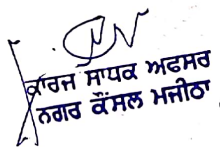 ਕਾਰਜ ਸਾਧਕ ਅਫਸਰ
ਨਗਰ ਕੌਂਸਲ ਮਜੀਠਾ